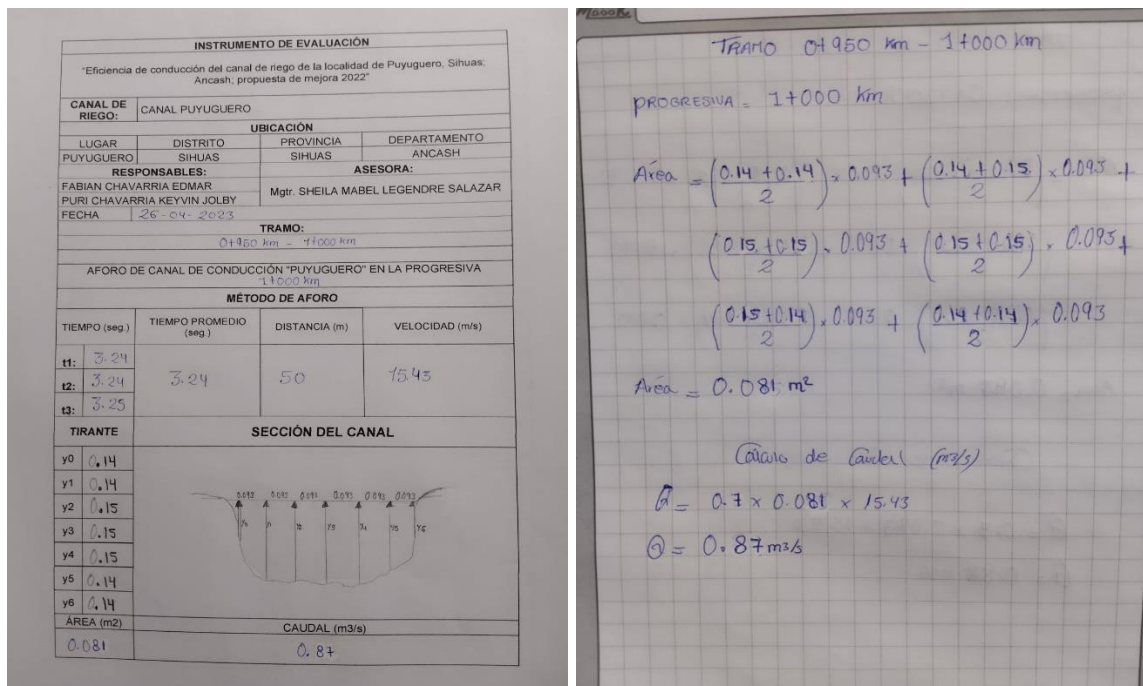 INSTRUMENTO DE EVALUACIÓN
"Eficiencia de conducción del canal de riego de la localidad de Puyuguero, Sihuas;
Ancash; propuesta de mejora 2022"
CANAL DE RIEGO: CANAL PUYUGUERO
UBICACIÓN
LUGAR DISTRITO PROVINCIA DEPARTAMENTO
PUYUGUERO SIHUAS SIHUAS ANCASH
RESPONSABLES: ASESORA:
FABIAN CHAVARRIA EDMAR
PURI CHAVARRIA KEYVIN JOLBY
Mgtr. SHEILA MABEL LEGENDRE SALAZAR
FECHA 26-04-2023
TRAMO:
0+950 km - 1+000 km
AFORO DE CANAL DE CONDUCCIÓN "PUYUGUERO" EN LA PROGRESIVA
1+000 km
MÉTODO DE AFORO
TIEMPO (seg.) TIEMPO PROMEDIO (seg.) DISTANCIA (m) VELOCIDAD (m/s)
t1: 3.24
t2: 3.24 3.24 50 15.43
t3: 3.25
TIRANTE SECCIÓN DEL CANAL
y0 0.14
y1 0.14
y2 0.15
y3 0.15
y4 0.15
y5 0.14
y6 0.14
0.093 0.093 0.093 0.093 0.093 0.093
y0 y1 y2 y3 y4 y5 y6
ÁREA (m2) CAUDAL (m3/s)
0.081 0.87
TRAMO 0+950 km - 1+000 km
PROGRESIVA = 1+000 km
Área = (0.14 + 0.14 / 2) × 0.093 + (0.14 + 0.15 / 2) × 0.093 +
(0.15 + 0.15 / 2) × 0.093 + (0.15 + 0.15 / 2) × 0.093 +
(0.15 + 0.14 / 2) × 0.093 + (0.14 + 0.14 / 2) × 0.093
Área = 0.081 m²
Cálculo de Caudal (m3/s)
Q = 0.7 × 0.081 × 15.43
Q = 0.87 m3/s